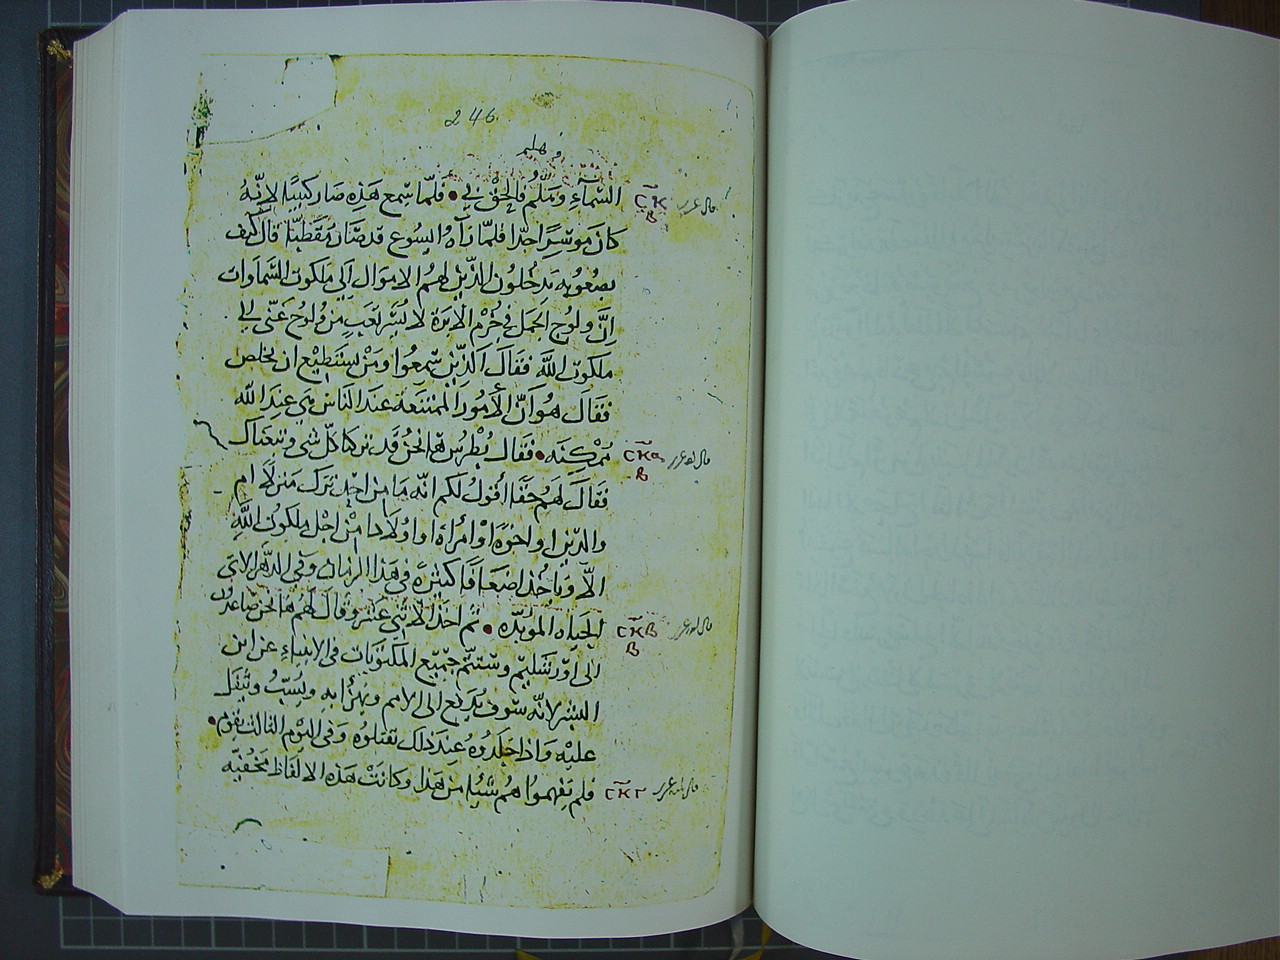 246
وهلم
السَّمآءِ وَهَلُمَّ فالحَقْ بي • فَلمّا سَمِعَ هَذِه صَار كئيبًا لانّهُ
كانَ مَوسِرًا جدّا فلمّا رَآه اليسوع قد صَار مُقَطّبًا قال كيف
بصُعُوبه يَدخُلون الذّين لهم الاموال الي ملكوت السَّماوات
اِنَّ ولوج الجمَل في خُرم الابرَة لا يَسْر تعَب من وُلوج غَنّي لي
ملكوت اللَّه فقالَ الّذين سَمِعُوا ومَنْ يستَطيْع ان يخلص
فقالَ هُو اَنّ الأمُور الممتنعَة عند النّاس هي عندَ اللّه
مُمْكِنَه • فقال بُطْرُس ها نحن قد تركنا كلّ شي وتبعناكَ
فقالَ لَهم حقّا أقول لكم انّه ما من احد ترك منزلا ام
والدّين او اخوة او امرأة او اولادا من اجل ملكوت اللَّهِ
الاّ ويأخُذ اضعَافًا كثيرَة في هَذا الزمان وفي الدّهر الاتي
الحيَاه المؤبّده • ثم اخذ الاثني عشر وقالَ لَهُم ها نحن صَاعدُون
الى اورَشليْم وستتمّ جميْع المكتوبَات في الانبيَاءِ عن ابن
البشر لانّه سَوف يُدفع الى الامم ويُهزَأ به ويُسَبّ ويُتفل
عليْه وَاذا جَلدُوهُ عندَ ذلك يَقتلوُه وَفي اليَوْم الثالث يَقوم •
فلم يَفهموا هُم شيْئا من هَذا وكانَتْ هَذه الالفاظ مَخفيّه
ⲤⲔ
Ⲃ
ⲤⲔⲀ
Ⲃ
ⲤⲔⲂ
Ⲃ
ⲤⲔⲄ